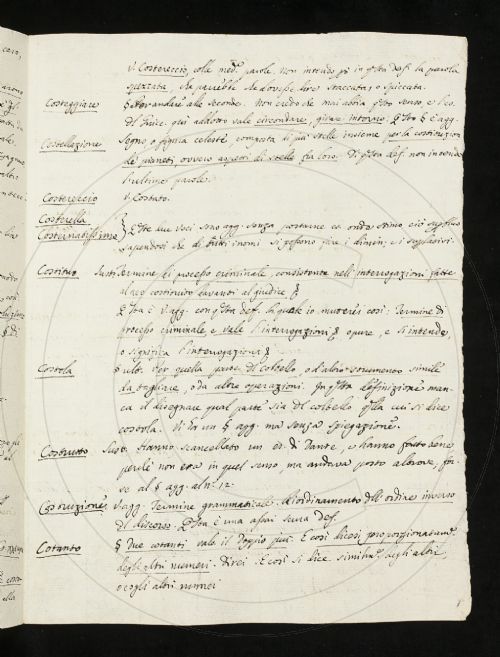 V. Costereccio colle med.e parole. Non intendo in q.sta def. la parola
spezzata, che parrebbe che dovesse dire staccata, o spiccata.
Costeggiare § Per andare alle seconde. Non credo che mai abbia q.sto senso, e l'es.
del qui addotto vale circondare, girare intorno. q.sto § è agg.
Costellazione Segno o figura celeste composta di più stelle insieme per la costituzion
de pianeti ovvero aspetti di stelle fra loro. Di q.sta def. non intendo
l'ultime parole.
Costereccio V. Costato.
Costerella
Costernatissimo } Q.ste due voci sono agg. senza portarne es. onde stimo ciò superfluo
sapendosi che di tutti i nomi si possono fare i dimin. e i superlativi.
Costituto Sust. Termine di processo criminale, consistente nell'interrogazioni fatte
al reo costituito davanti al giudice §
Q.sta è V. agg. con q.sta def. la quale io muterei così: Termine di
processo criminale e vale l'interrogazioni § oppure, e s'intende,
o significa l'interrogazioni §
Costola § ult.o Per quella parte di coltello, o d'altro strumento simile
da tagliare, o da altre operazioni. In q.sta definizione man-
ca il disegnare qual parte sia del coltello q.lla cui si dice
costola. Vi è un § agg. ma senza spiegazione.
Costrutto Sust. Hanno scancellato un es. di Dante, e hanno fatto bene
perché non era in quel senso, ma andava posto altrove, for-
se al § agg. al n.o 12.
Costruzione V. agg. Termine grammaticale. ordinamento dell'ordine inverso
del discorso. Q.sta è una assai def.
Cotanto § Due cotanti vale il doppio più. E così dicesi proporzionatam.e
degli altri numeri. Direi. E così si dice simil.e degli altri
o cogli altri numeri